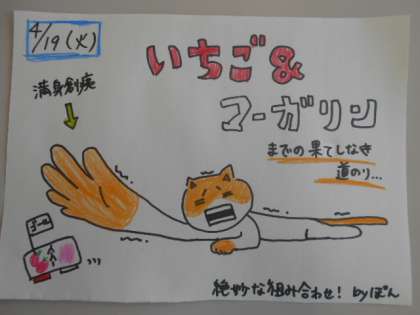 4/19(火)
いちご&
マーガリン
満身創痍
までの果てしなき
道のり…
ゴール
絶妙な組み合わせ! byぽん